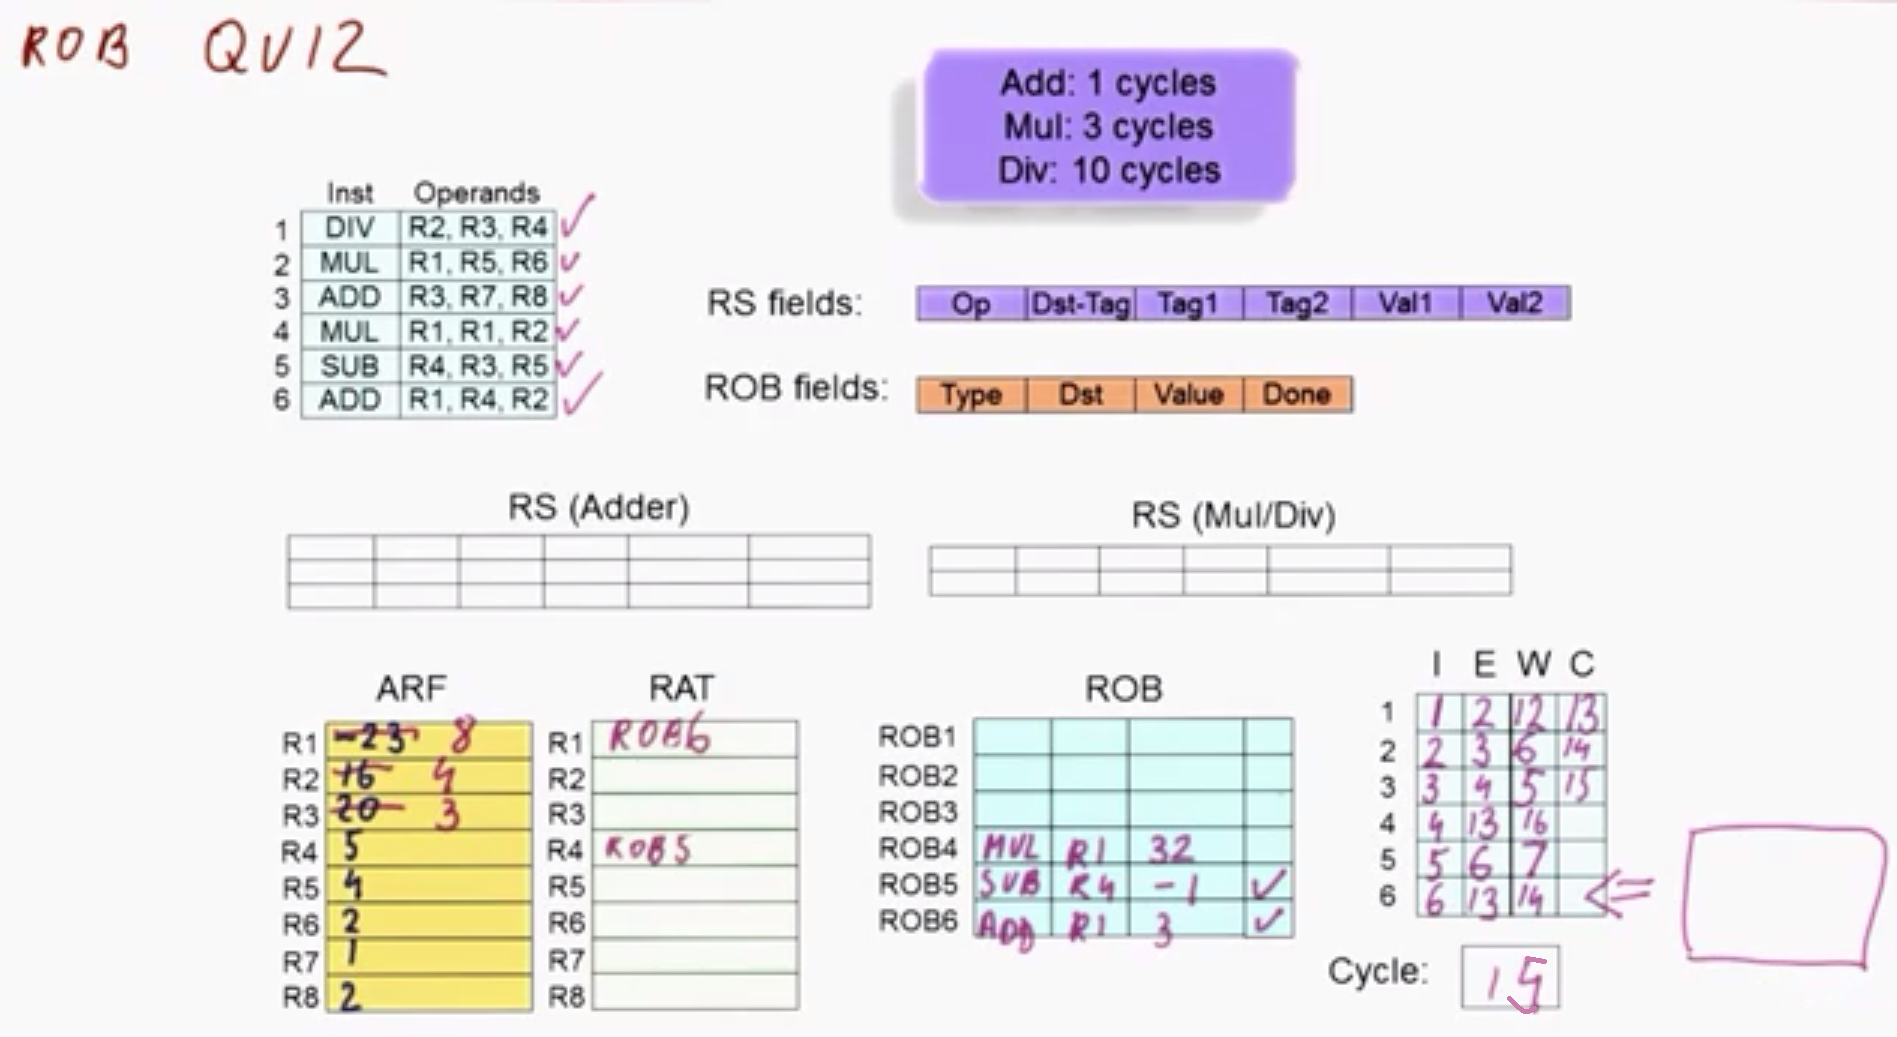 ROB QUIZ
Add: 1 cycles
Mul: 3 cycles
Div: 10 cycles
Inst Operands
1 DIV R2, R3, R4 ✓
2 MUL R1, R5, R6 ✓
3 ADD R3, R7, R8 ✓
4 MUL R1, R1, R2 ✓
5 SUB R4, R3, R5 ✓
6 ADD R1, R4, R2 ✓
RS fields: Op Dst-Tag Tag1 Tag2 Val1 Val2
ROB fields: Type Dst Value Done
RS (Adder)
RS (Mul/Div)
ARF
R1 -23 8
R2 16 4
R3 20 3
R4 5
R5 4
R6 2
R7 1
R8 2
RAT
R1 ROB6
R2
R3
R4 ROB5
R5
R6
R7
R8
ROB
ROB1
ROB2
ROB3
ROB4 MUL R1 32
ROB5 SUB R4 -1 ✓
ROB6 ADD R1 3 ✓
I E W C
1 1 2 12 13
2 2 3 6 14
3 3 4 5 15
4 4 13 16
5 5 6 7
6 6 13 14 <=
Cycle: 15